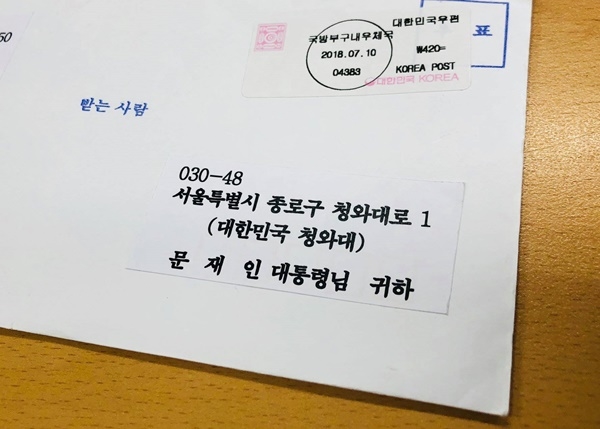 50
표
대한민국우편
국방부구내우체국
2018.07.10
₩420=
04383
KOREA POST
대한민국 KOREA
받는 사람
030-48
서울특별시 종로구 청와대로 1
(대한민국 청와대)
문 재 인 대통령님 귀하